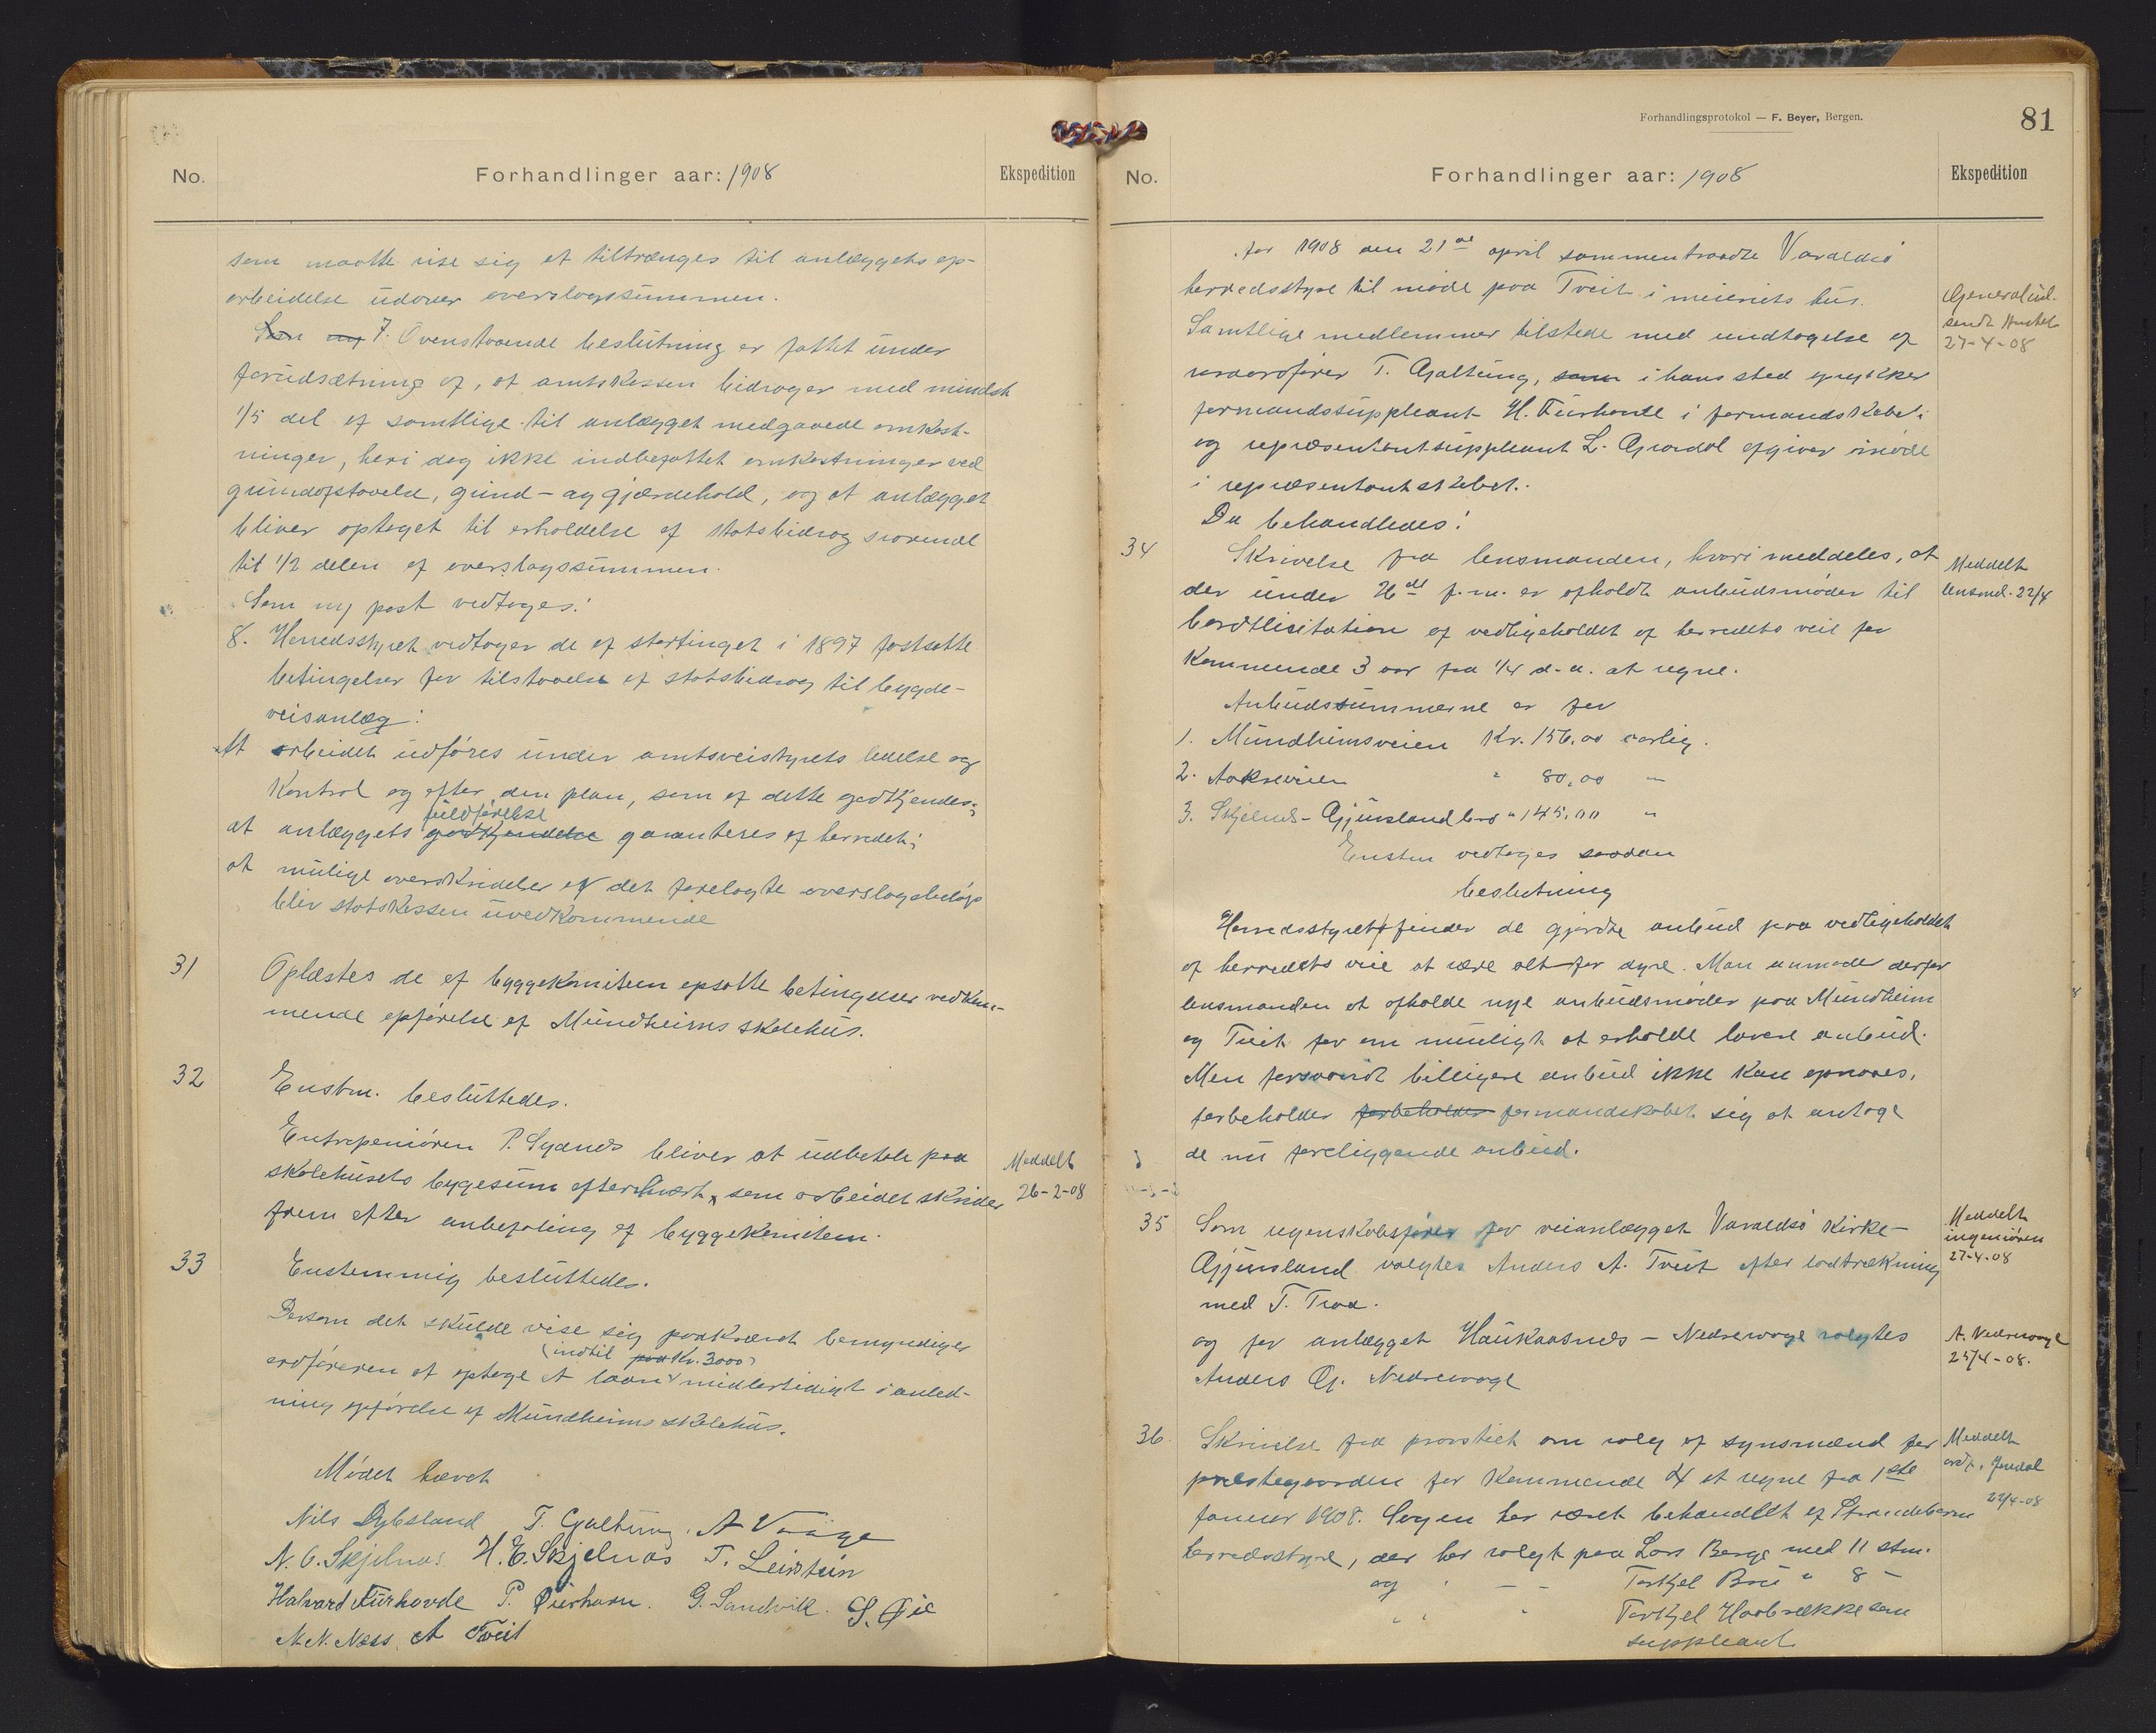 No.
Forhandlinger aar: 1908
Ekspedition
som maatte vise sig at tiltrænges til anlæggets op-
arbeidelse udover overslagssummen.
7. Ovenstaaende beslutning er fattet under
forudsætning af, at amtskassen bidrager med mindst
1/5 del af samtlige til anlægget medgaaede omkost-
ninger, heri dog ikke indbefattet omkostninger ved
grundafstaaelse, grind- og gjærdehold, og at anlægget
bliver optaget til erholdelse af statsbidrag svarende
til 1/2 delen af overslagssummen.
Som ny post vedtoges:
8. Herredsstyret vedtager de af stortinget i 1897 fastsatte
betingelser for tilstaaelse af statsbidrag til bygde-
veisanlæg:
At arbeidet udføres under amtsveistyrets ledelse og
kontrol og efter den plan, som af dette godkjendes;
fuldførelse
at anlæggets godkjendelse garanteres af herredet;
at mulige overskridelser af det forelagte overslagsbeløp
bliv statskassen uvedkommende
31 Oplæstes de af byggekomiteen opsatte betingelser vedkom-
mende opførelse af Mundheims skolehus.
32 Enstm. besluttedes.
Entrepeniøren P. Sydnes bliver at udbetale paa
skolehusets bygesum efterhvert som arbeidet skrider
frem efter anbefaling af byggekomiteen.
Meddelt
26-2-08
33 Enstemmig besluttedes.
Dersom det skulde vise sig paakrævet bemyndiges
(indtil paa Kr. 3000)
ordføreren at optage et laan midlertidigt i anled-
ning opførelse af Mundheims skolehus.
Mødet hævet
Nils Dybsland T. Galtung. A Vaage
N. O. Skjelnas H. E. Skjelnas T. Leirstein
Halvard Furhovde P. G. Sandvik. S. Øie
N. N. Næss. A Tveit
Forhandlingsprotokol — F. Beyer, Bergen.
81
No.
Forhandlinger aar: 1908
Ekspedition
Aar 1908 den 21de april sammentraadte Varaldsø
herredsstyre til møde paa Tveit i meieriets hus.
Samtlige medlemmer tilstede med undtagelse af
T. Galtung, som i hans sted rykker
formandssuppleant H. Furhovde i formandskabet
og repræsentantsuppleant L. Gjerdal afgiver møde
i repræsentantskabet.
sendt
27-4-08
Da behandledes:
34 Skrivelse fra lensmanden, hvori meddeles, at
der under 26de f.m. er afholdt anbudsmøder til
bortlisitation af vedligeholdet af herredets veie for
kommende 3 aar fra 1/4 d.a. at regne.
Meddelt
lensmd. 22/4
Anbudssummerne er for
1. Mundheimsveien Kr. 156.00 aarlig.
2. Aakreveien " 80,00 "
3. Skjelnes-Gjuvsland bro " 145.00 "
Enstm vedtoges saadan
beslutning
Herredsstyret finder de gjorte anbud paa vedligeholdet
af herredets veie at være alt for dyre. Man anmoder derfor
lensmanden at afholde nye anbudsmøder paa Mundheim
og Tveit for om muligt at erholde lavere anbud.
Men forsaavidt billigere anbud ikke kan opnaaes,
forbeholder forbeholder formandskabet sig at antage
de nu foreliggende anbud.
35 Som regnskabsfører for veianlægget Varaldsø kirke-
Gjuvsland valgtes Anders A. Tveit efter lodtrækning
med T. Traa.
Meddelt
ingeniøren
27-4-08
og for anlægget Haukaasnes - Nedrevaage valgtes
Anders G. Nedrevaage
A. Nedrevaage
25/4-08.
36. Skrivelse fra provstiet om valg af synsmænd for
prestegaarden for kommende 4 at regne fra 1ste
januar 1908. Sagen har været behandlet af Strandebarm
herredsstyre, der har valgt paa Lars Berge med 11 stm.
og " - - Torkjel Bru " 8 -
" " " Torkjel Haabrække som
suppleant
Meddelt
ordf.
22/4-08